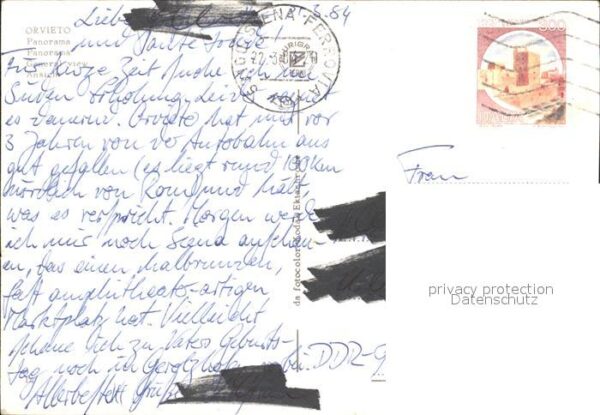 ORVIETO
Panorama
Panorama
General view
Ansicht
3.84
Liebe
und Tante
Für kurze Zeit suche ich im
Süden Erholung. Leider
es vorerst. Orvieto hat mir vor
3 Jahren von der Autobahn aus
gut gefallen (es liegt rund 100 km
nördlich von Rom) und hält
was es verspricht. Morgen werde
ich mir noch Siena anschau-
en, das einen halbrunden,
fast amphitheater-artigen
Marktplatz hat. Vielleicht
schaue ich zu Vaters Geburts-
tag noch in
Allerbeste Grüße
SIENA FERROVIA
da fotocolor Kodak Ektachrome
Frau
DDR-9
privacy protection
Datenschutz